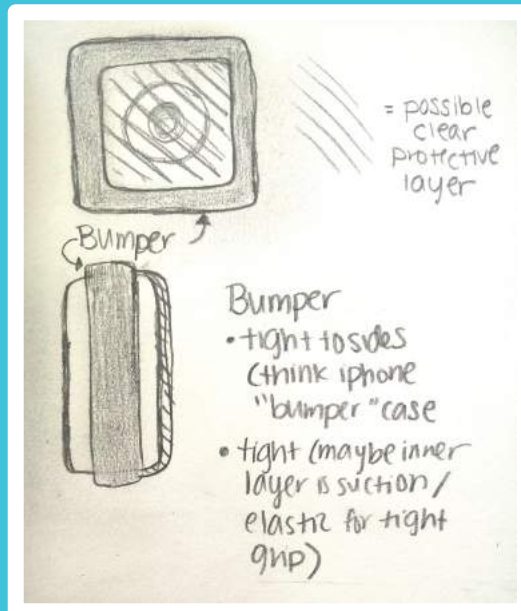 = possible
clear
protective
layer
Bumper
Bumper
• tight to sides
(think iphone
"bumper" case
• tight (maybe inner
layer is suction /
elastic for tight
grip)